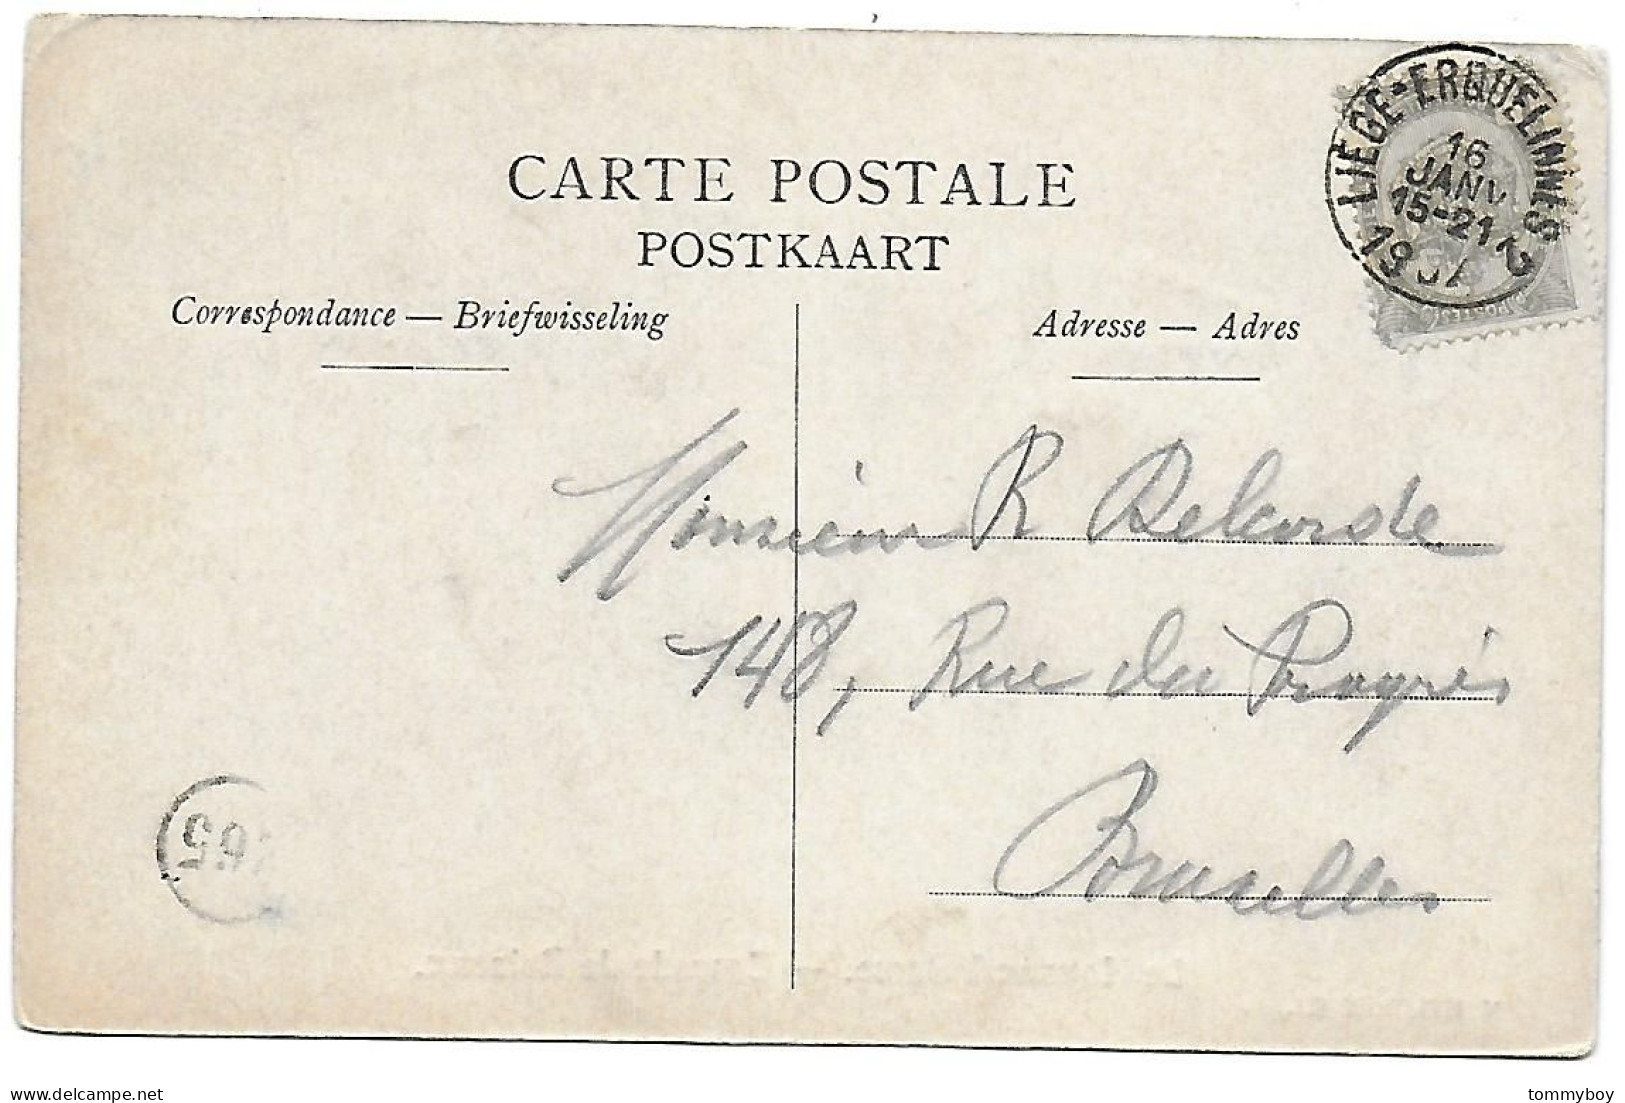 CARTE POSTALE
POSTKAART
Correspondance — Briefwisseling
Adresse — Adres
LIEGE-ERQUELINNES
16
JANV
15-21
19 07
POSTES
Monsieur R Delcorde
148, Rue du Progrès
Bruxelles
65
delcampe.net
tommyboy